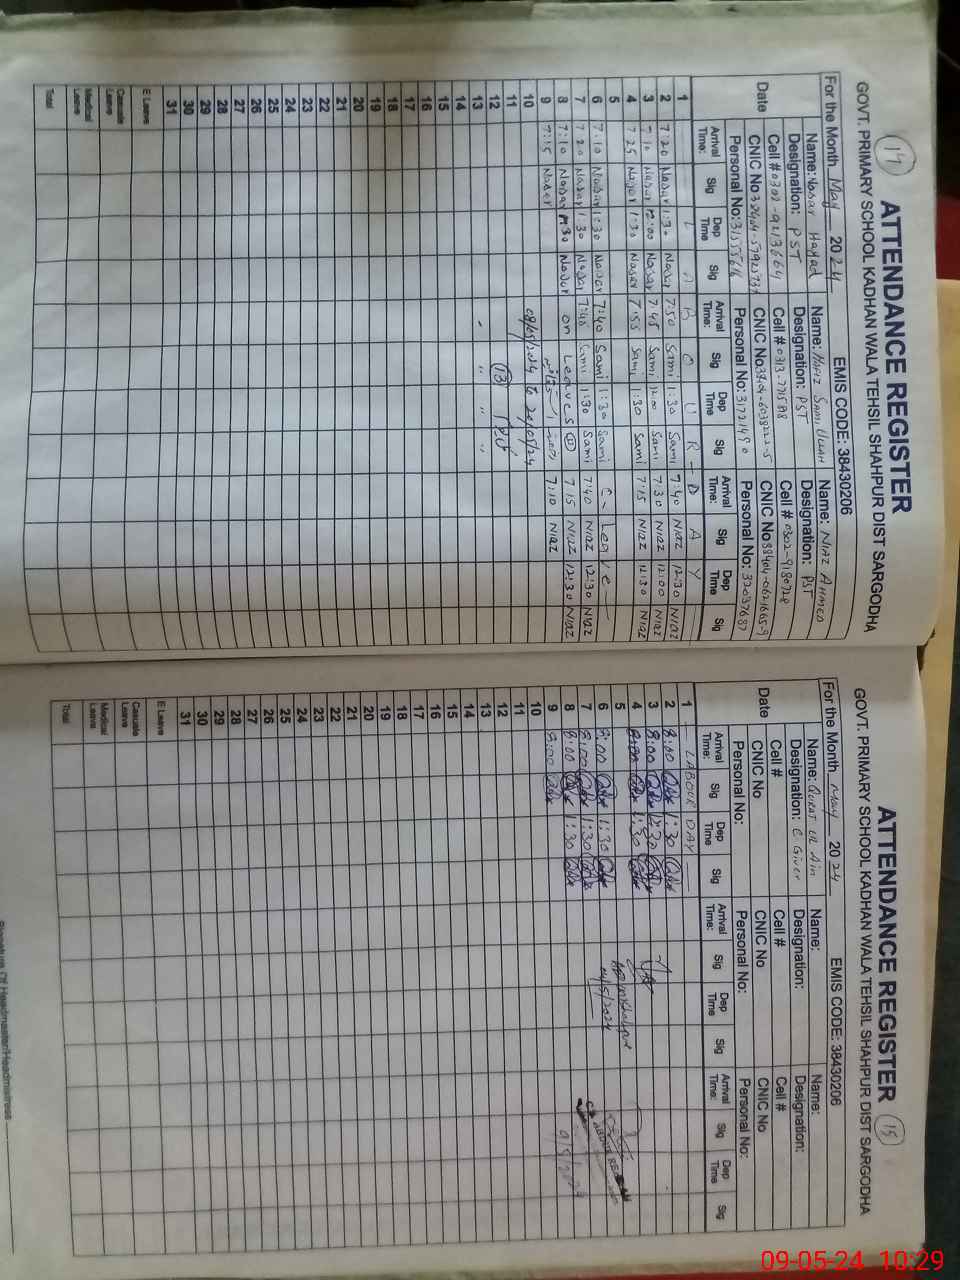 14
ATTENDANCE REGISTER
GOVT. PRIMARY SCHOOL KADHAN WALA TEHSIL SHAHPUR DIST SARGODHA
EMIS CODE: 38430206
For the Month May 2024
Name: Nasar Hayad Name: Hafiz Sami Ullah Name: Niaz Ahmed
Designation: PST Designation: PST Designation: PST
Cell # 0302-9213664 Cell # Cell # 0302-9180728
CNIC No CNIC No CNIC No 38404-0621665-9
Personal No: Personal No: Personal No: 32037687
Date Arrival Time: Sig Dep Time Sig Arrival Time: Sig Dep Time Sig Arrival Time: Sig Dep Time Sig
1 L A B O U R - D A Y
2 7:20 Nasar 1:30 Nasar 7:50 Sami 1:30 Sami 7:40 NIAZ 12:30 NIAZ
3 7:10 Nasar 12:00 Nasar 7:45 Sami 12:00 Sami 7:30 NIAZ 12:00 NIAZ
4 7:25 Nasar 1:30 Nasar 7:55 Sami 1:30 Sami 7:15 NIAZ 12:30 NIAZ
5
6 7:10 Nasar 1:30 Nasar 7:40 Sami 1:30 Sami C- Leave
7 7:20 Nasar 1:30 Nasar 7:45 Sami 1:30 Sami 7:40 NIAZ 12:30 NIAZ
8 7:10 Nasar 1:30 Nasar on Leaves 7:15 NIAZ 12:30 NIAZ
9 7:15 Nasar 7:10 NIAZ
10 08/05/2024 to 20/05/24
11
12 13
13 - " " "
14
15
16
17
18
19
20
21
22
23
24
25
26
27
28
29
30
31
E Leave
Casuale Leave
Medical Leave
Total
ATTENDANCE REGISTER 15
GOVT. PRIMARY SCHOOL KADHAN WALA TEHSIL SHAHPUR DIST SARGODHA
EMIS CODE: 38430206
For the Month May 2024
Name: Qurat Ul Ain Name: Name:
Designation: C Giver Designation: Designation:
Cell # Cell # Cell #
CNIC No CNIC No CNIC No
Personal No: Personal No: Personal No:
Date Arrival Time: Sig Dep Time Sig Arrival Time: Sig Dep Time Sig Arrival Time: Sig Dep Time Sig
1 LABOUR DAY
2 8:00 1:30
3 8:00 12:30
4 8:00 1:30
5
6 8:00 1:30
7 8:00 1:30
8 8:00 1:30
9 8:00
10
11
12
13
14
15
16
17
18
19
20
21
22
23
24
25
26
27
28
29
30
31
E Leave
Casuale Leave
Medical Leave
Total
Of Headmaster/Headmistress
09-05-24 10:29